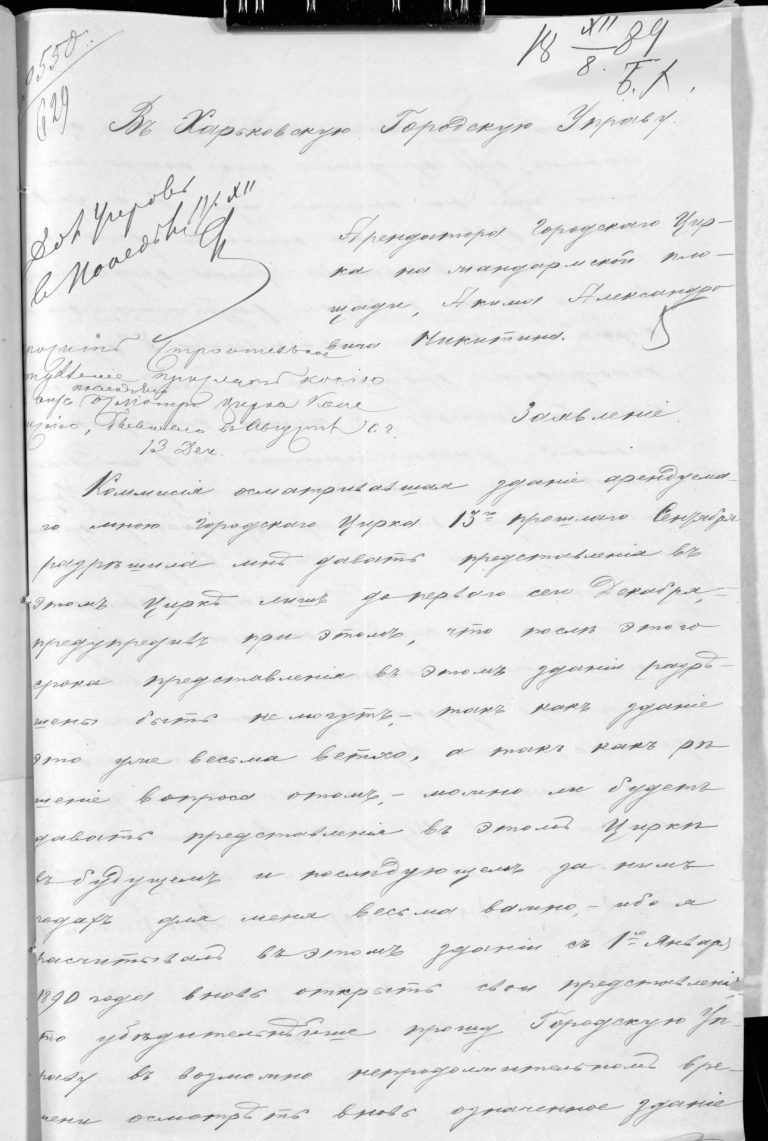 550
629
18 XII/8. 89
Въ Харьковскую Городскую Управу.
11/XII
Арендатора Городскаго Цир-
ка на жандармской пло-
щади, Акима Александро-
вича Никитина.
копію
осмотра цирка
бывшаго въ Августѣ с. г.
13 Дек.
Заявленіе.
Коммисія осматривавшая зданіе арендуема-
го мною Городскаго Цирка 13го прошлаго Сентября
разрѣшила мнѣ давать представленія въ
этомъ Циркѣ лишь до перваго сего Декабря,-
предупредивъ при этомъ, что послѣ этого
срока представленія въ этомъ зданіи разрѣ-
шены быть не могутъ,- такъ какъ зданіе
это уже весьма ветхо, а такъ какъ рѣ
шеніе вопроса отомъ,- можно ли будетъ
давать представленія въ этомъ Циркѣ
въ будущемъ и послѣдующемъ за нимъ
годахъ для меня весьма важно,- ибо я
расчитывалъ въ этомъ зданіи съ 1го Января
1890 года вновь открыть свои представленія,
то убѣдительнѣйше прошу Городскую Уп-
раву въ возможно непродолжительномъ вре-
мени осмотрѣть вновь означенное зданіе